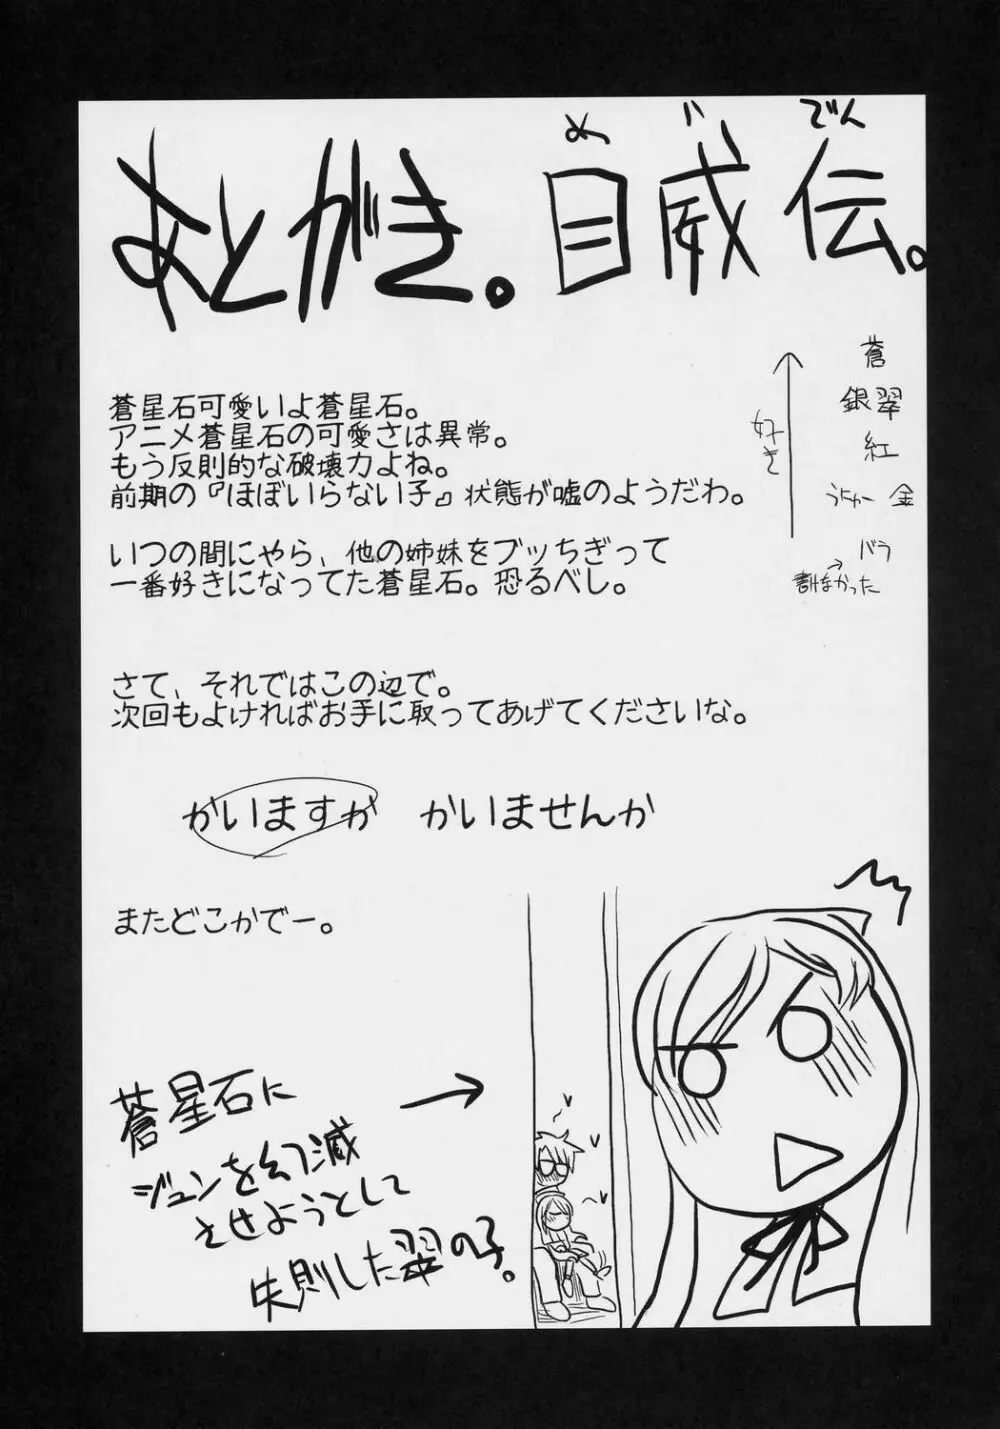 あとがき。目威伝。
め い でん
蒼星石可愛いよ蒼星石。
アニメ蒼星石の可愛さは異常。
もう反則的な破壊力よね。
前期の『ほぼいらない子』状態が嘘のようだわ。
いつの間にやら、他の姉妹をブッちぎって
一番好きになってた蒼星石。恐るべし。
好き
蒼
銀翠
紅
うにゅー 金
バラ
書けなかった
さて、それではこの辺で。
次回もよければお手に取ってあげてくださいな。
かいますか かいませんか
またどこかでー。
蒼星石に
ジュンを幻滅
させようとして
失則した翠の子。